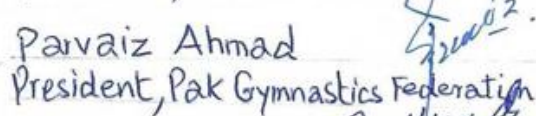 Parvaiz Ahmad
President, Pak Gymnastics Federation